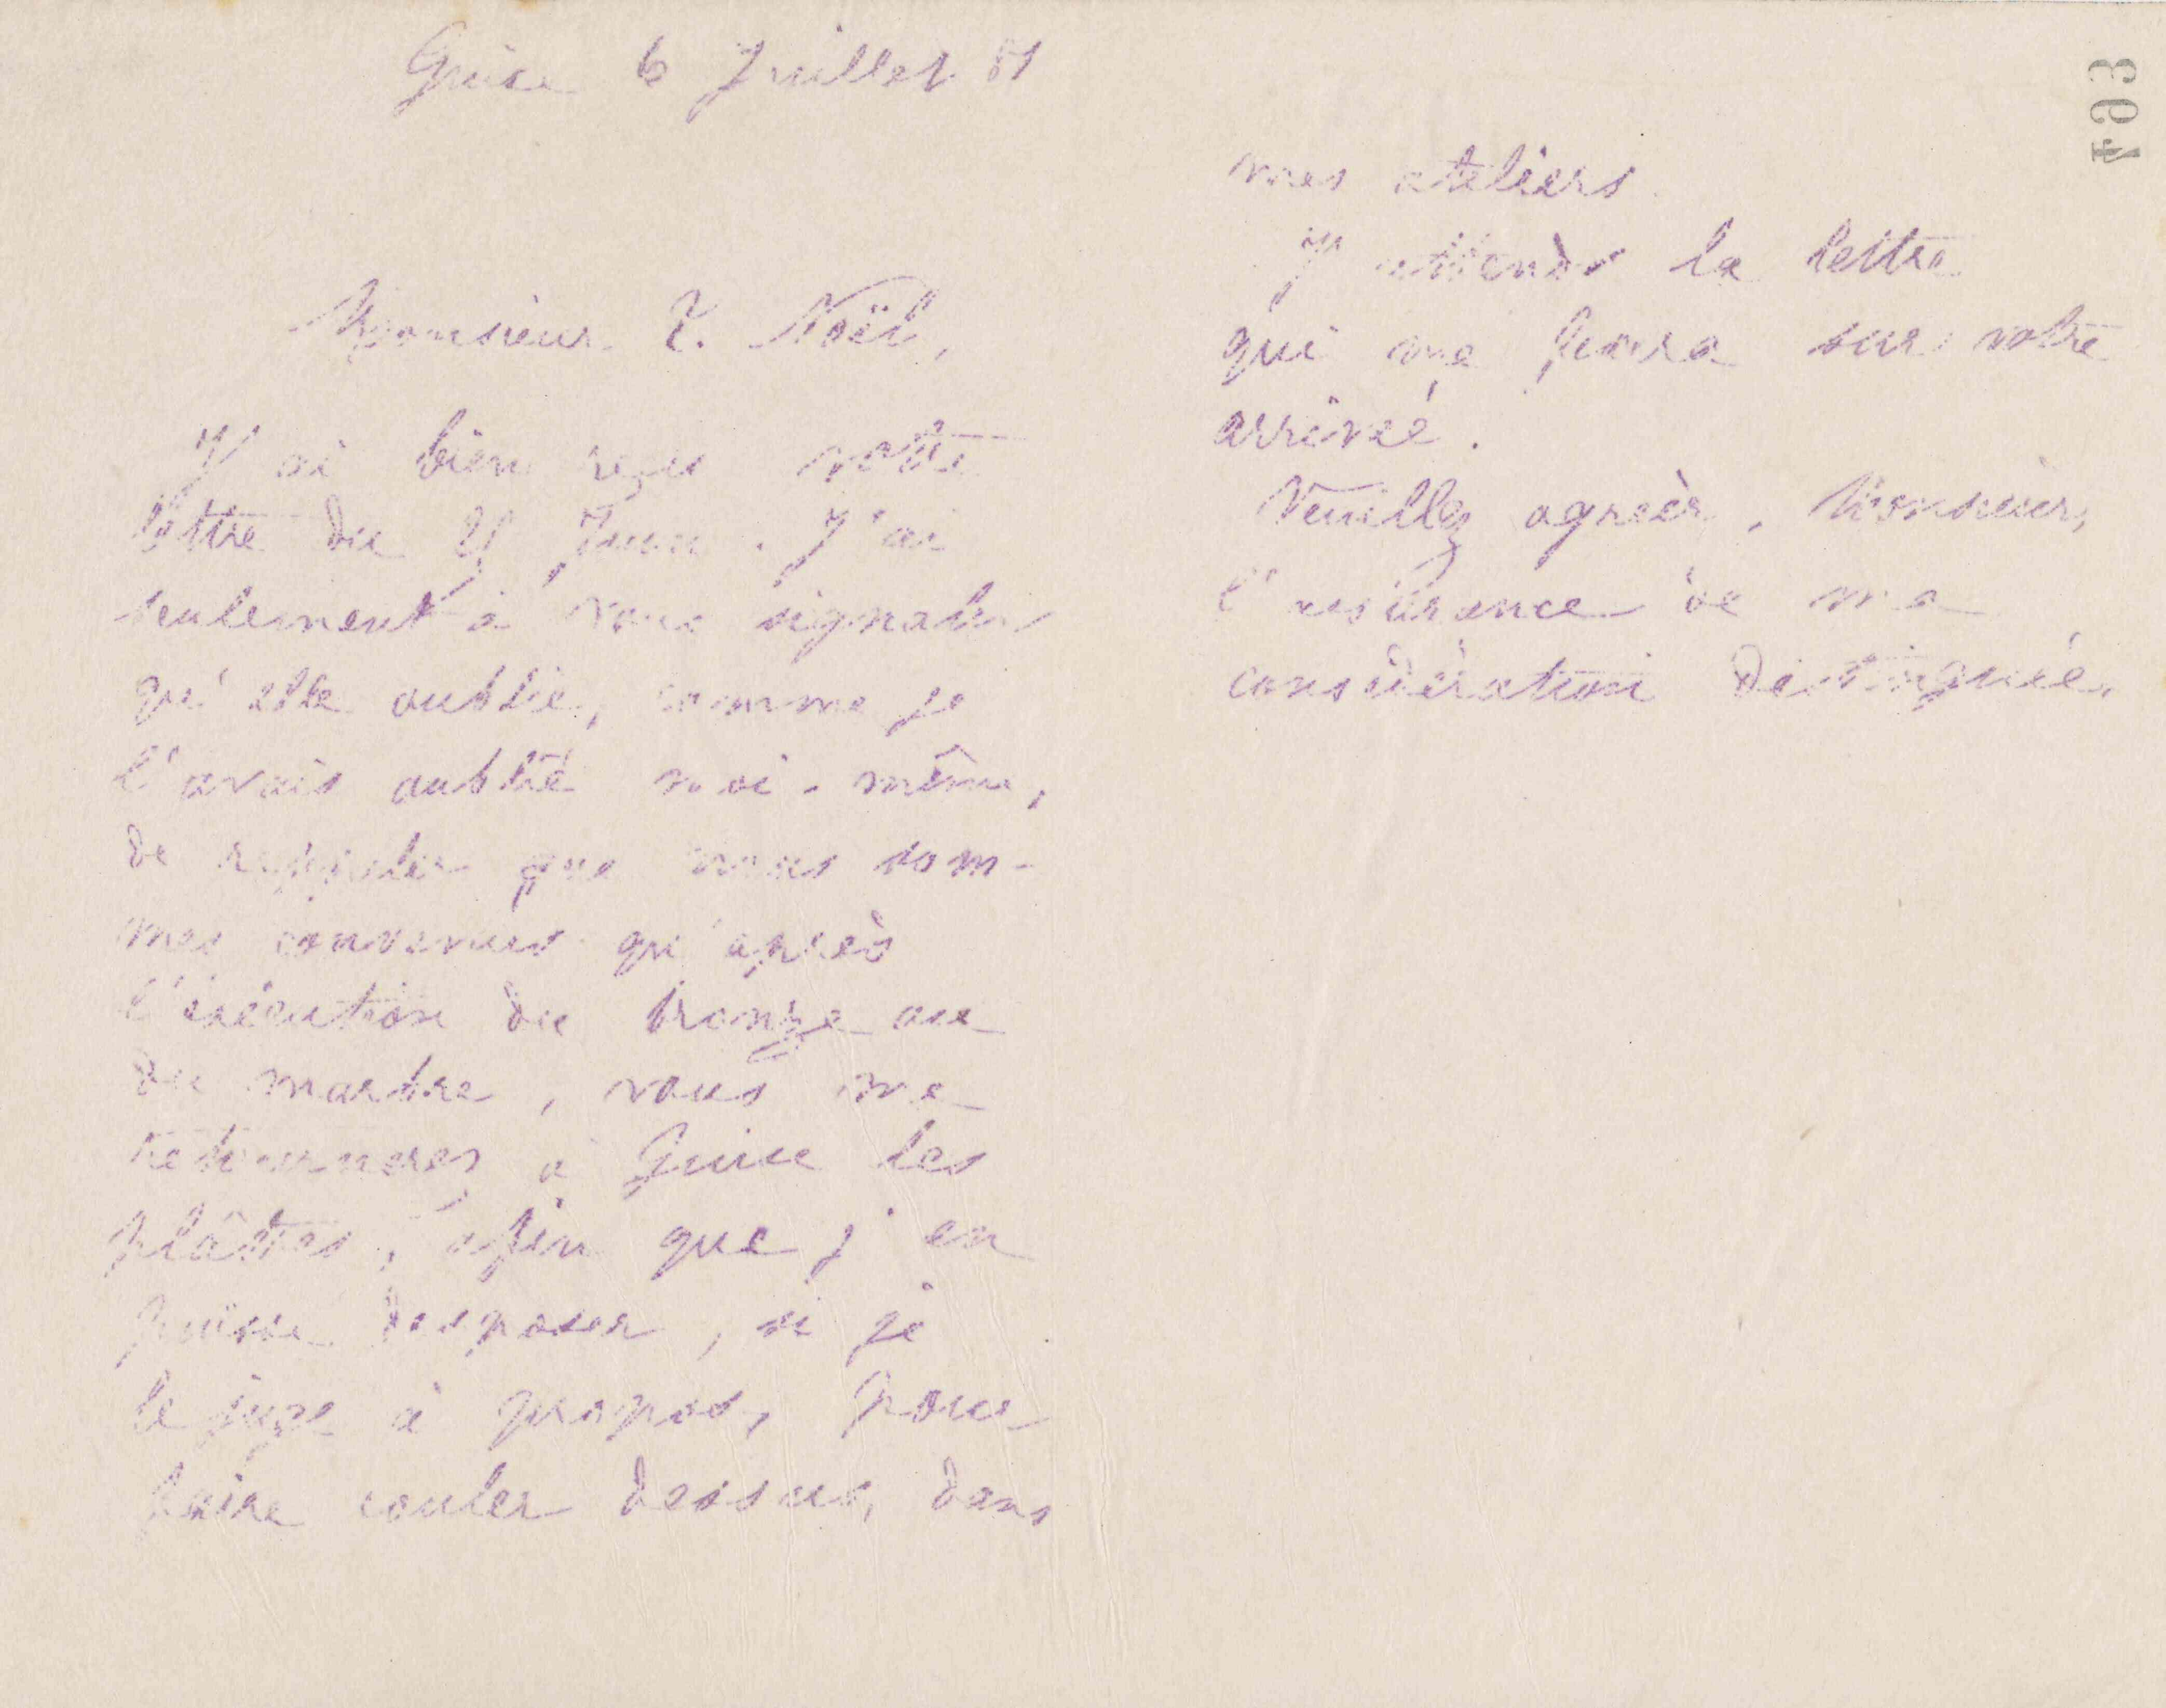 Guise 6 Juillet 81
Monsieur T. Noël,
J'ai bien reçu votre
lettre du 21 Juin. J'ai
seulement à vous signaler
qu'elle oublie, comme je
l'avais oublié moi-même,
de rappeler que nous som-
mes convenus qu'après
l'exécution du bronze ou
du marbre, vous me
retournerez à Guise les
plâtres, afin que j'en
puisse disposer, si je
le juge à propos, pour
faire couler dessus, dans
mes ateliers.
J'attends la lettre
qui me fixera sur votre
arrivée.
Veuillez agréer, Monsieur,
l'assurance de ma
considération distinguée.